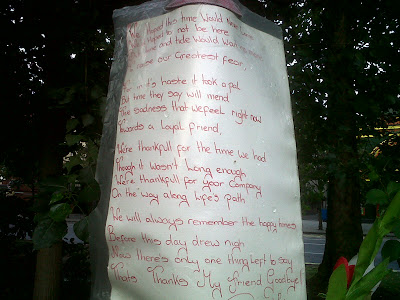 hoped this time Would Never Come
to not be here
and tide Would Wait
our Greatest fear,
it's haste it took a pal
But time they say will mend
The sadness that we feel right now
Towards a Loyal friend,
We're thankfull for the time we had
Though it wasn't Long enough
We're thankfull for your Company
On the way along life's path
We will always remember the happy times
Before this day drew nigh
Now there's only one thing left to say
Thats Thanks My Friend Goodbye!